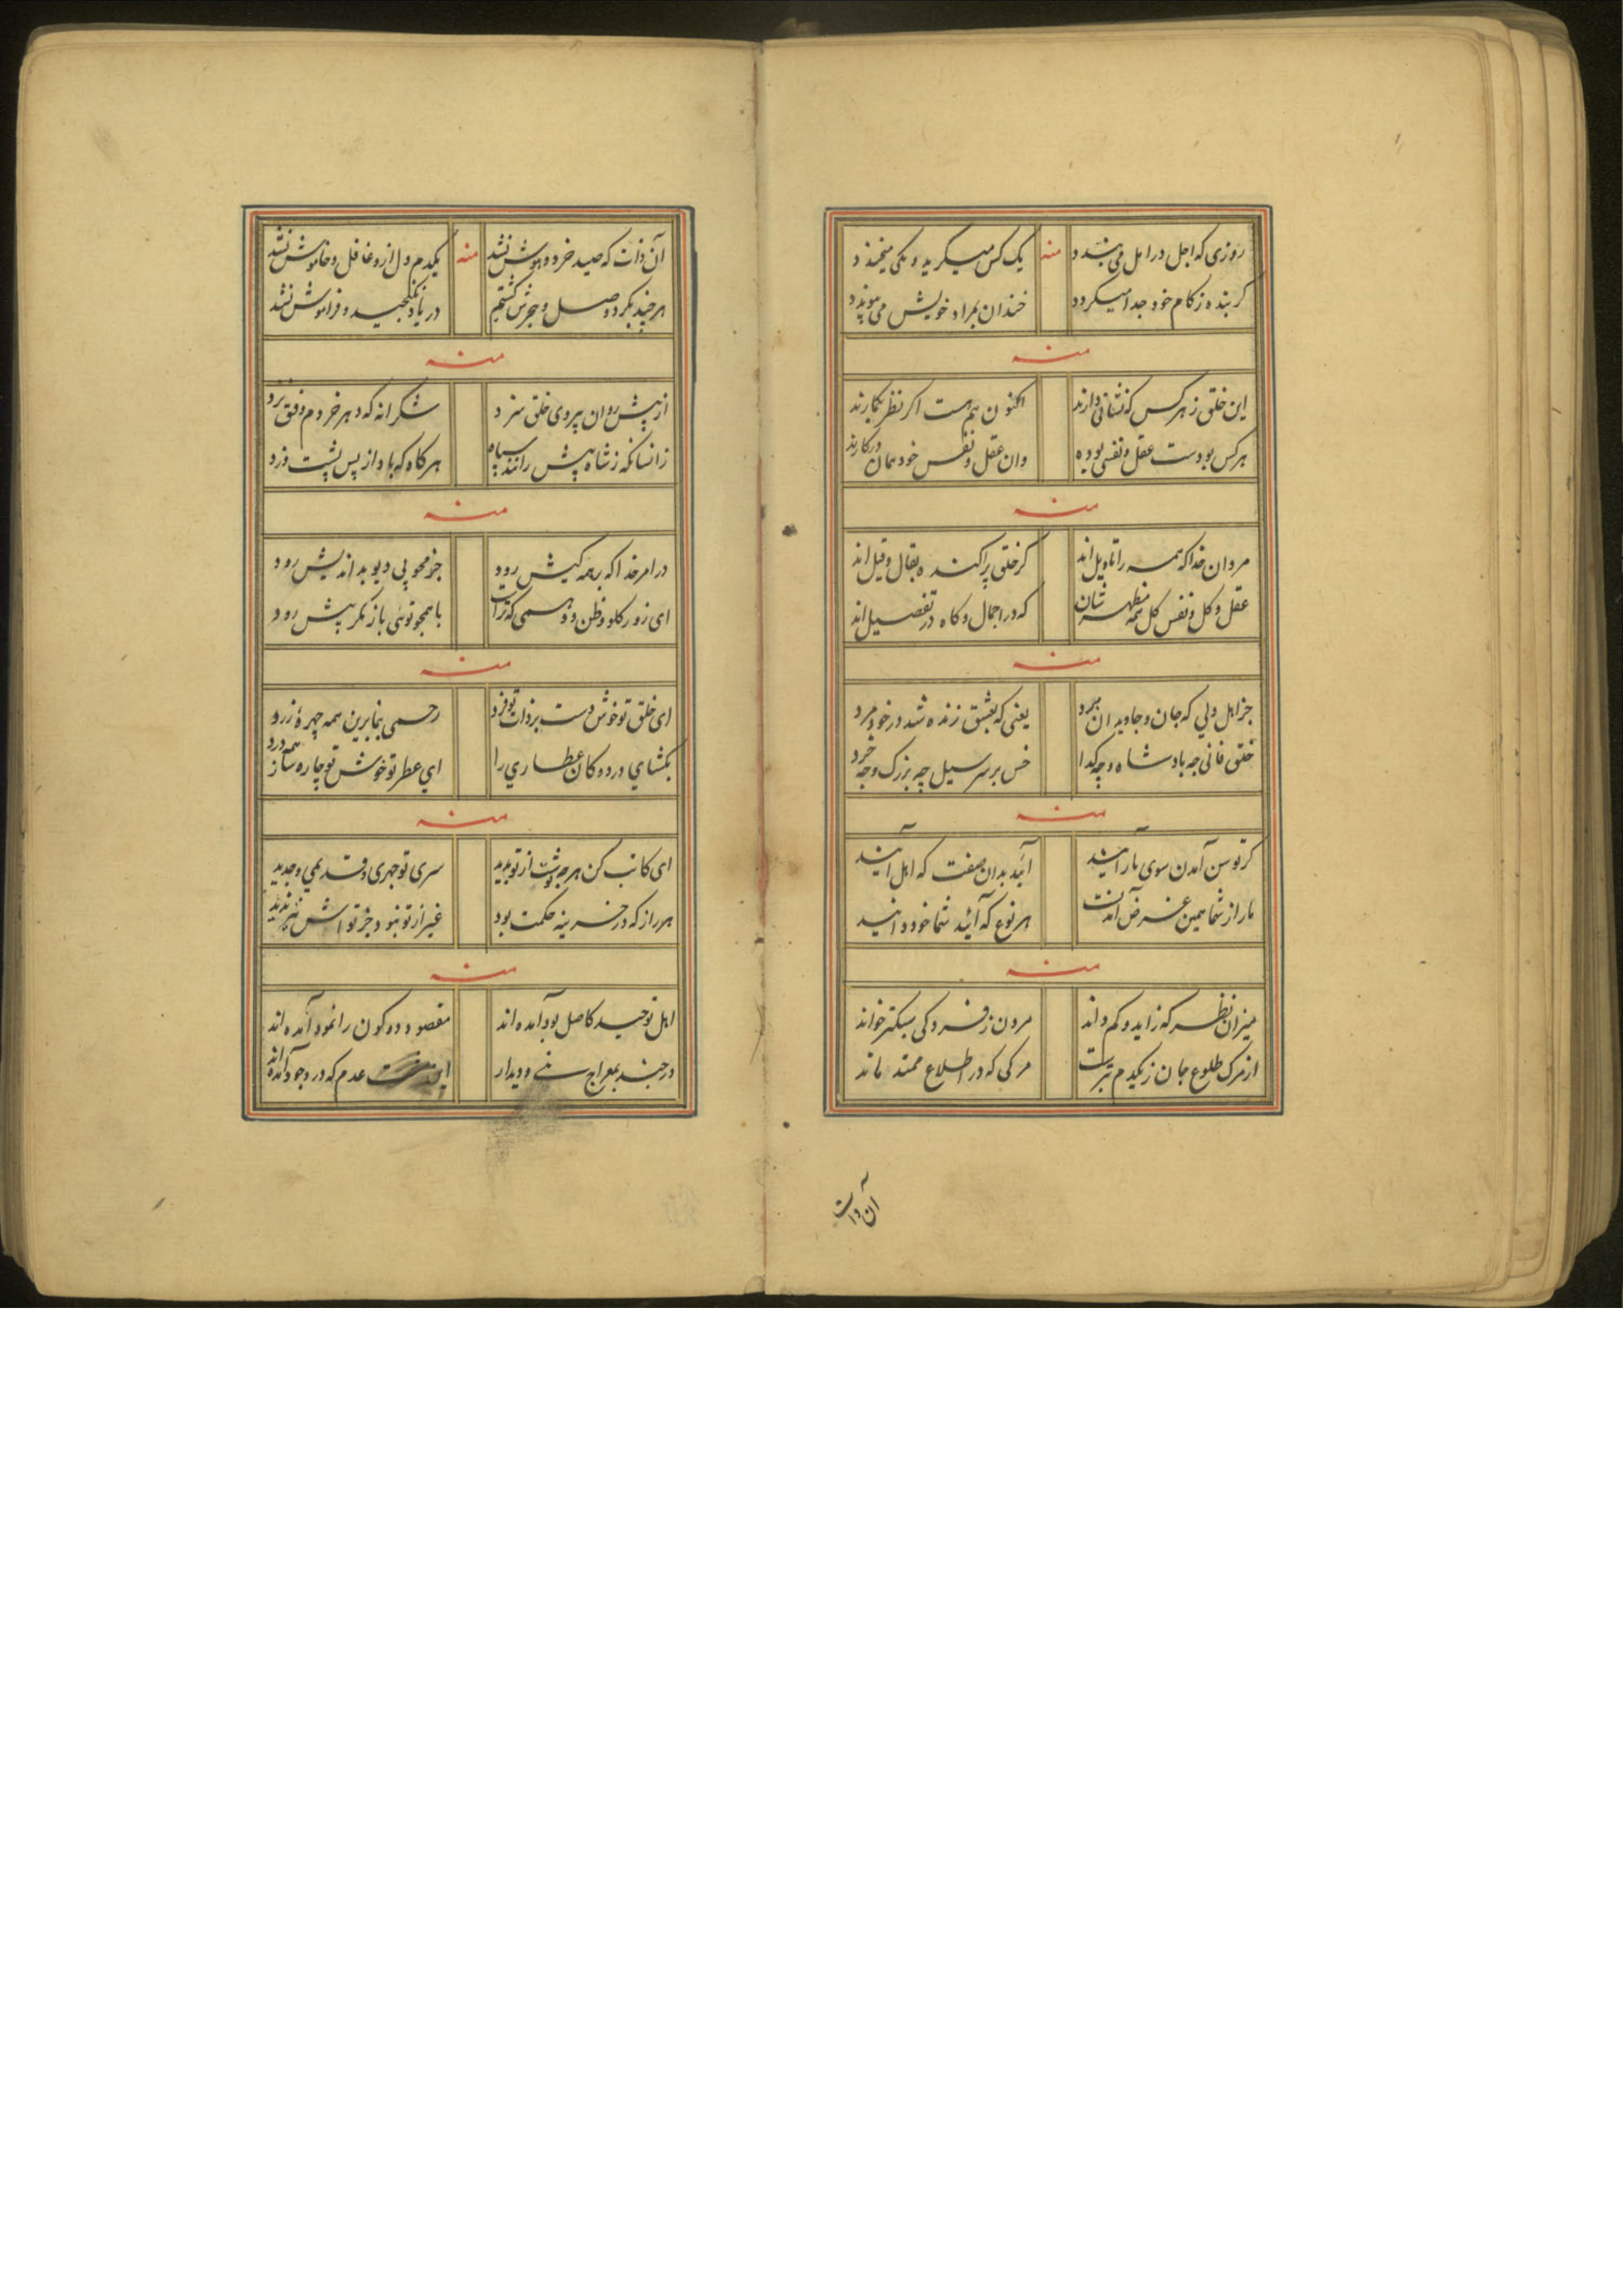 روزی که اجل در امل می‌بندد منه یک کس میگرید و یکی میخندد
گرینده ز کام خود جدا میگردد خندان بمراد خویش می‌پوندد
منه
این خلق ز هر کس که نشانی دارند اکنون هم هست اگر نظر بگمارند
هر کس بودست عقل و نفسی بوده وان عقل و نفس خود همان در کارند
منه
مردان خدا که همه را تاویل اند گر خلقی پراکنده بقال و قیل اند
عقل و کل و نفس کل همه مظهر شان که در اجمال و کاه در تفصیل اند
منه
جز اهل دلی که جان و جاویدان برد یعنی که بعشق زنده شد در خود مرد
خلق فانی چه بادشاه و چه کدا خس بر سر سیل چه بزرگ و چه خرد
منه
گر توسن آمدن سوی ما رانید آیید بدان صفت که اهل آنید
ما را ز شما همین غرض آمدنست هر نوع که آئید شما خود دانید
منه
میزان نظر که زاید و کم داند مردن ز فسردکی سبکتر خواند
از مرک طلوع جان ز یکدم بترست مرکی که در اطلاع ممتد ماند
آن ذات
آن ذات که صید خرد و هوش نشد منه یکدم دل ازو غافل و خاموش نشد
هر چند بکرد وصل و هجرش کشتیم در یاد نکنجید و فراموش نشد
منه
از پیش روان پیروی خلق سزد شکرانه که دهر خرد م وفق نزد
زانسانکه ز شاه پیش رانند سپاه هر کاه که باد از پس پشت وزد
منه
در امر خدا که بر همه کیش رود جز محو پی دیو بد اندیش رود
ای زور کلو و ظن و وهمی که تراست با همچو توئی باز مکر پیش رود
منه
ای خلق تو خوش دست بر ذات تو فرد رحمی بنما برین همه چهرهٔ زرد
بکشای در دوکان عطاری را ای عطر تو خوش تو چاره ساز همه درد
منه
ای کاتب کن هر چه نوشت از تو پدید سری تو جهری و قدیمی و جدید
هر راز که در خزینه حکمت بود غیر از تو نبود و جز تو اش نیز ندید
منه
اهل توحید کاصل بود آمده اند مقصود دو کون را نمود آمده اند
در جنب بمعراج و دیدار عدم که در وجود آمده اند